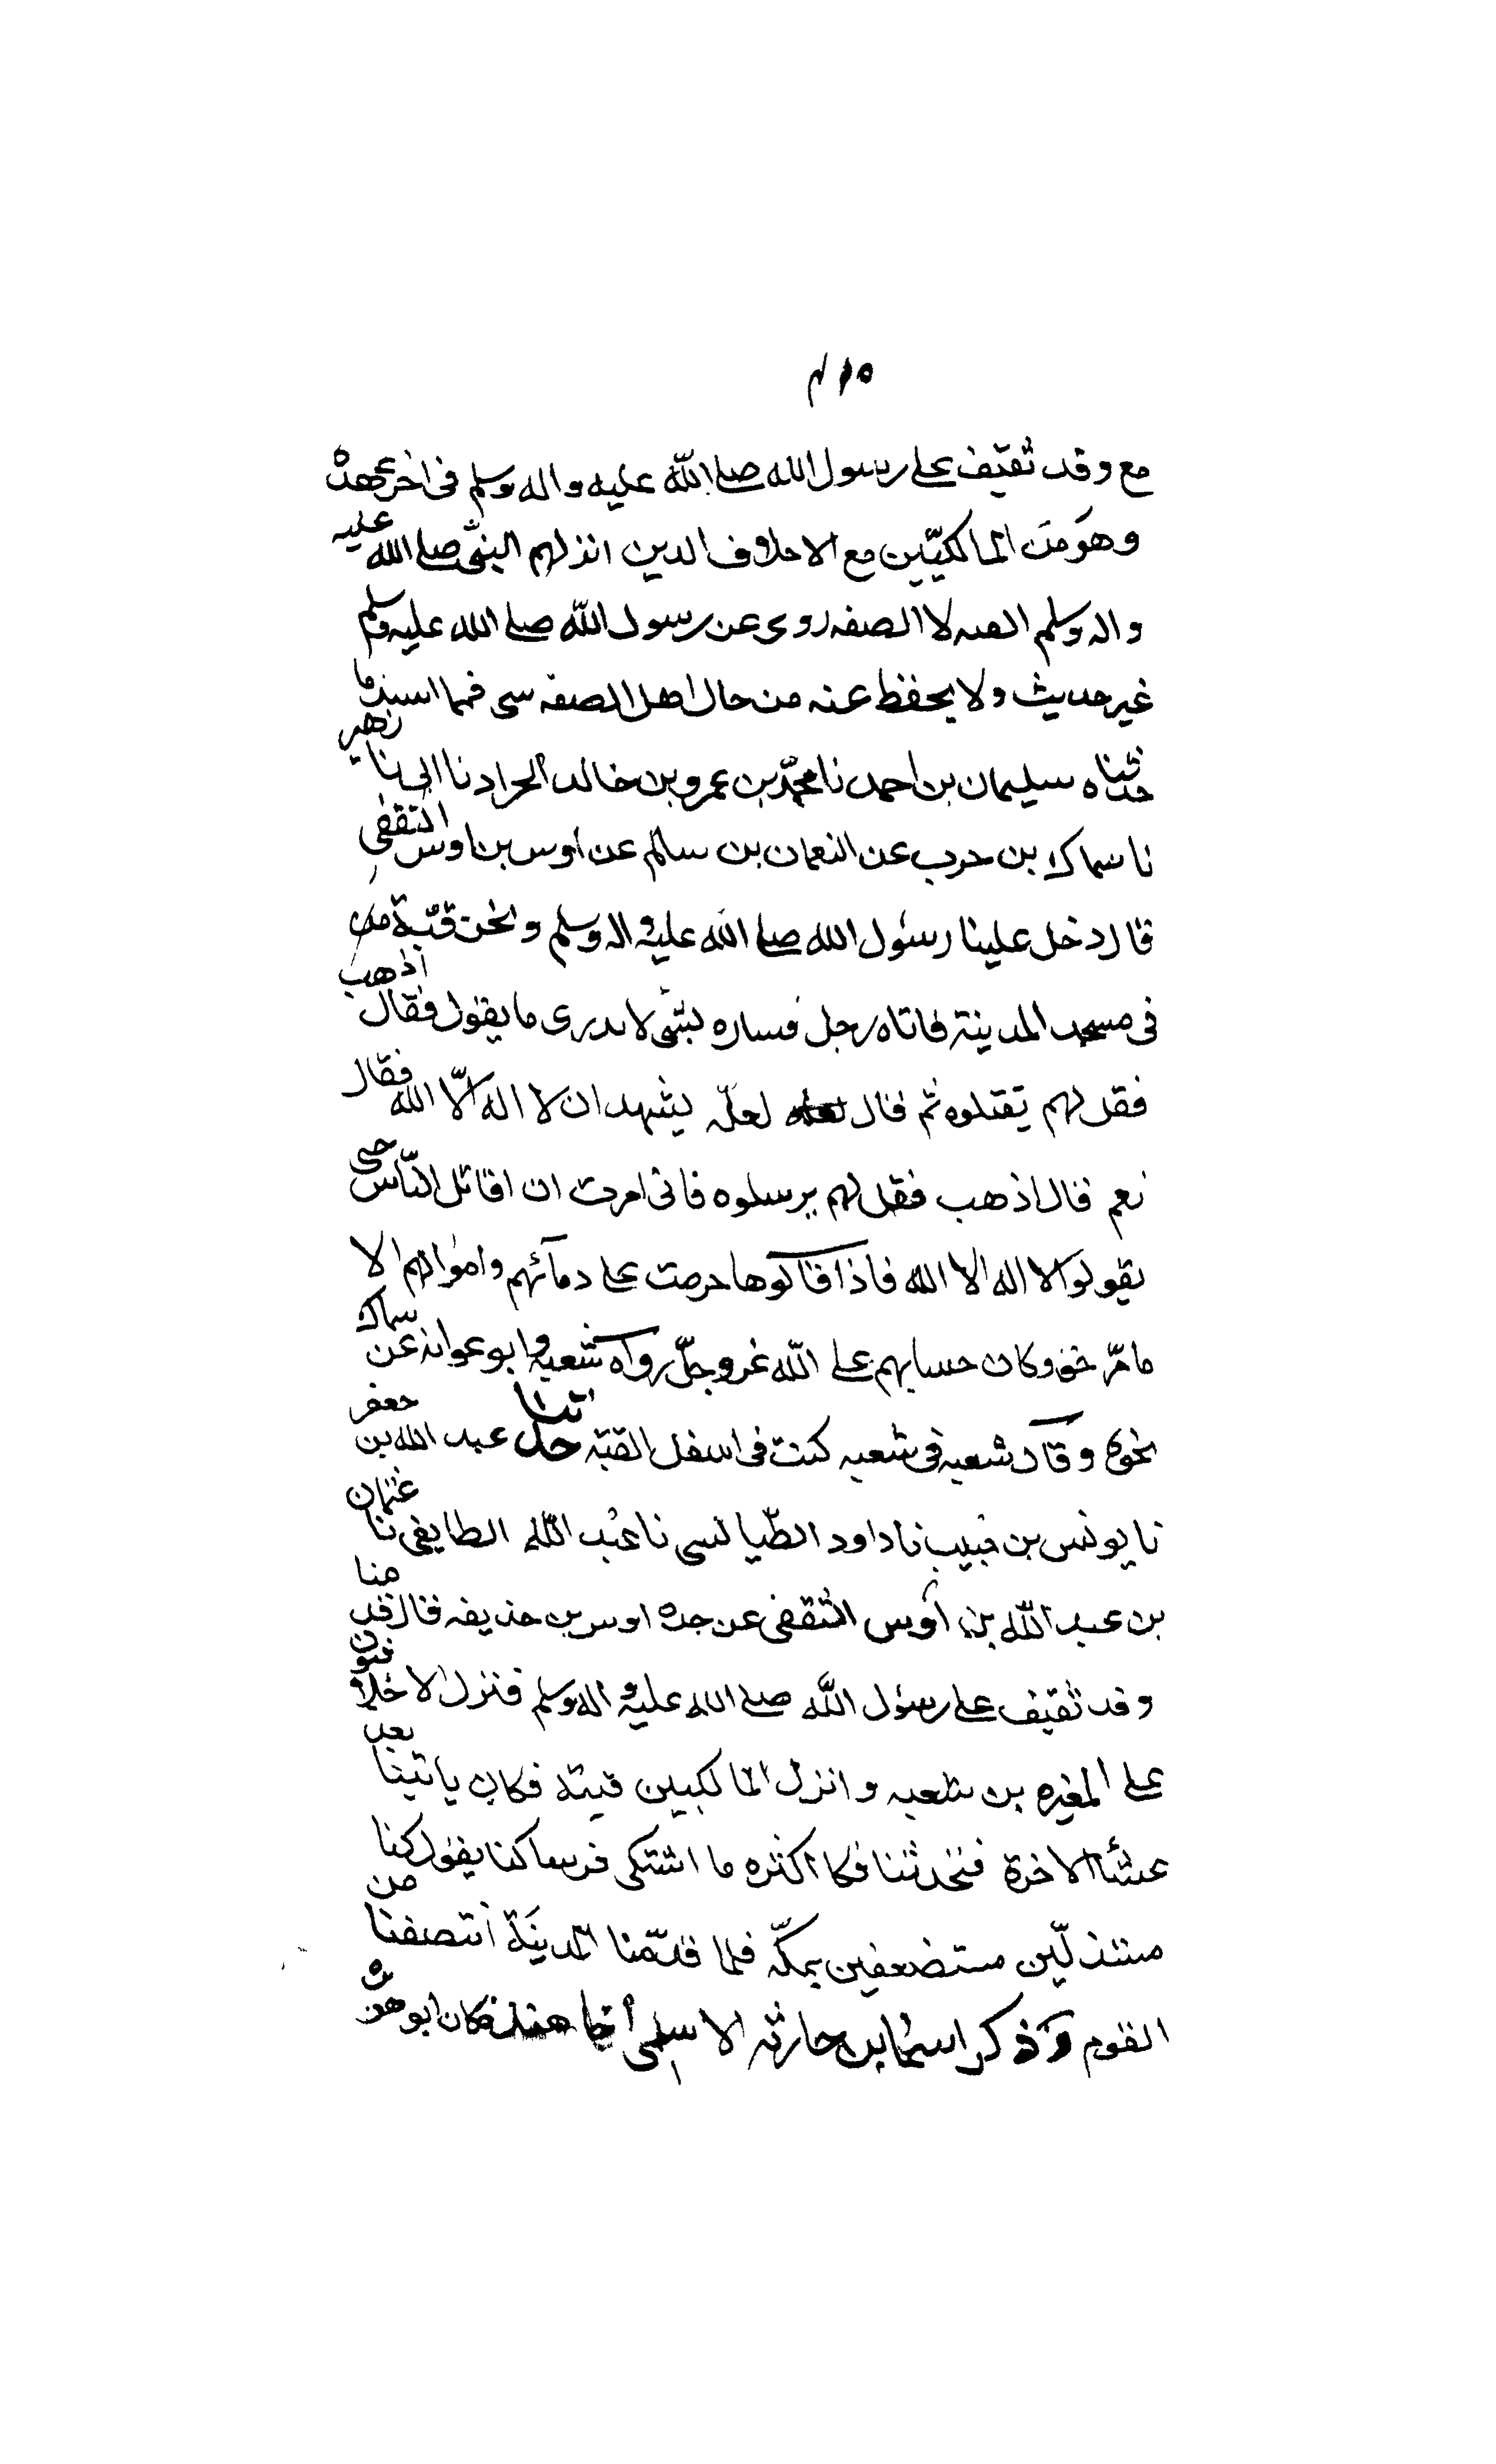 ٥١٤
مع وفد ثقيف على رسول الله صلى الله عليه واله وسلم فى اخر عهده
وهو من المالكيّين مع الاحلاف الدين انزلهم النبىّ صلى الله عليه
واله وسلم القبه لا الصفه روى عن رسول الله صلى الله عليه وسلم
غير حديث ولا يحفظ عنه من حال اهل الصفه سى فمما اسند ما
حدثناه سليمان بن احمد نا محمّد بن عمرو بن خالد الحرانى نا ابى نا زهير
نا سماك بن حرب عن النعمان بن سالم عن اوس بن اوس الثقفى
قال دخل علينا رسول الله صلى الله عليه واله وسلم ونحن قبّة
فى مسجد المدينة فاتاه رجل فساره بشى لا ندرى ما يقول فقال اذهب
فقل لهم تقتلوه ثم قال لعلّه يشهد ان لا اله الّا الله فقال
نعم قال اذهب فقل لهم يرسلوه فانى امرت ان اقاتل النّاس حتى
يقولوا لا اله الا الله فاذا قالوها حرمت على دمآئهم واموالهم الا
وكان حسابهم على الله عز وجلّ رواه شعبه وابو عوانه عن سماك
نحوه وقال شعبه فى شعبه كنت فى اسفل القبّه حدثنا عبد الله بن جعفر
نا يونس بن حبيب نا داود الطّيالسى نا عبد الله الطايفى نا عثمان
بن عبد الله بن اوس الثقفى عن جده اوس بن حذيفه قال قدمنا
وفد ثقيف على رسول الله صلى الله عليه واله وسلم فنزل الاحلافيون
على المغيره بن شعبه وانزل المالكيين قبته فكان ياتينا بعد
عشاء الاخرة فتحدثنا فكا اكثره ما اشتكى قريسا كنا يقول كنا
مستذلّين مستضعفين بمكّه فلما قدّمنا المدينَة انتصفنا من
القوم وذكر اسما بن حارثه الاسلمى اخا هند فكان ابو هريره